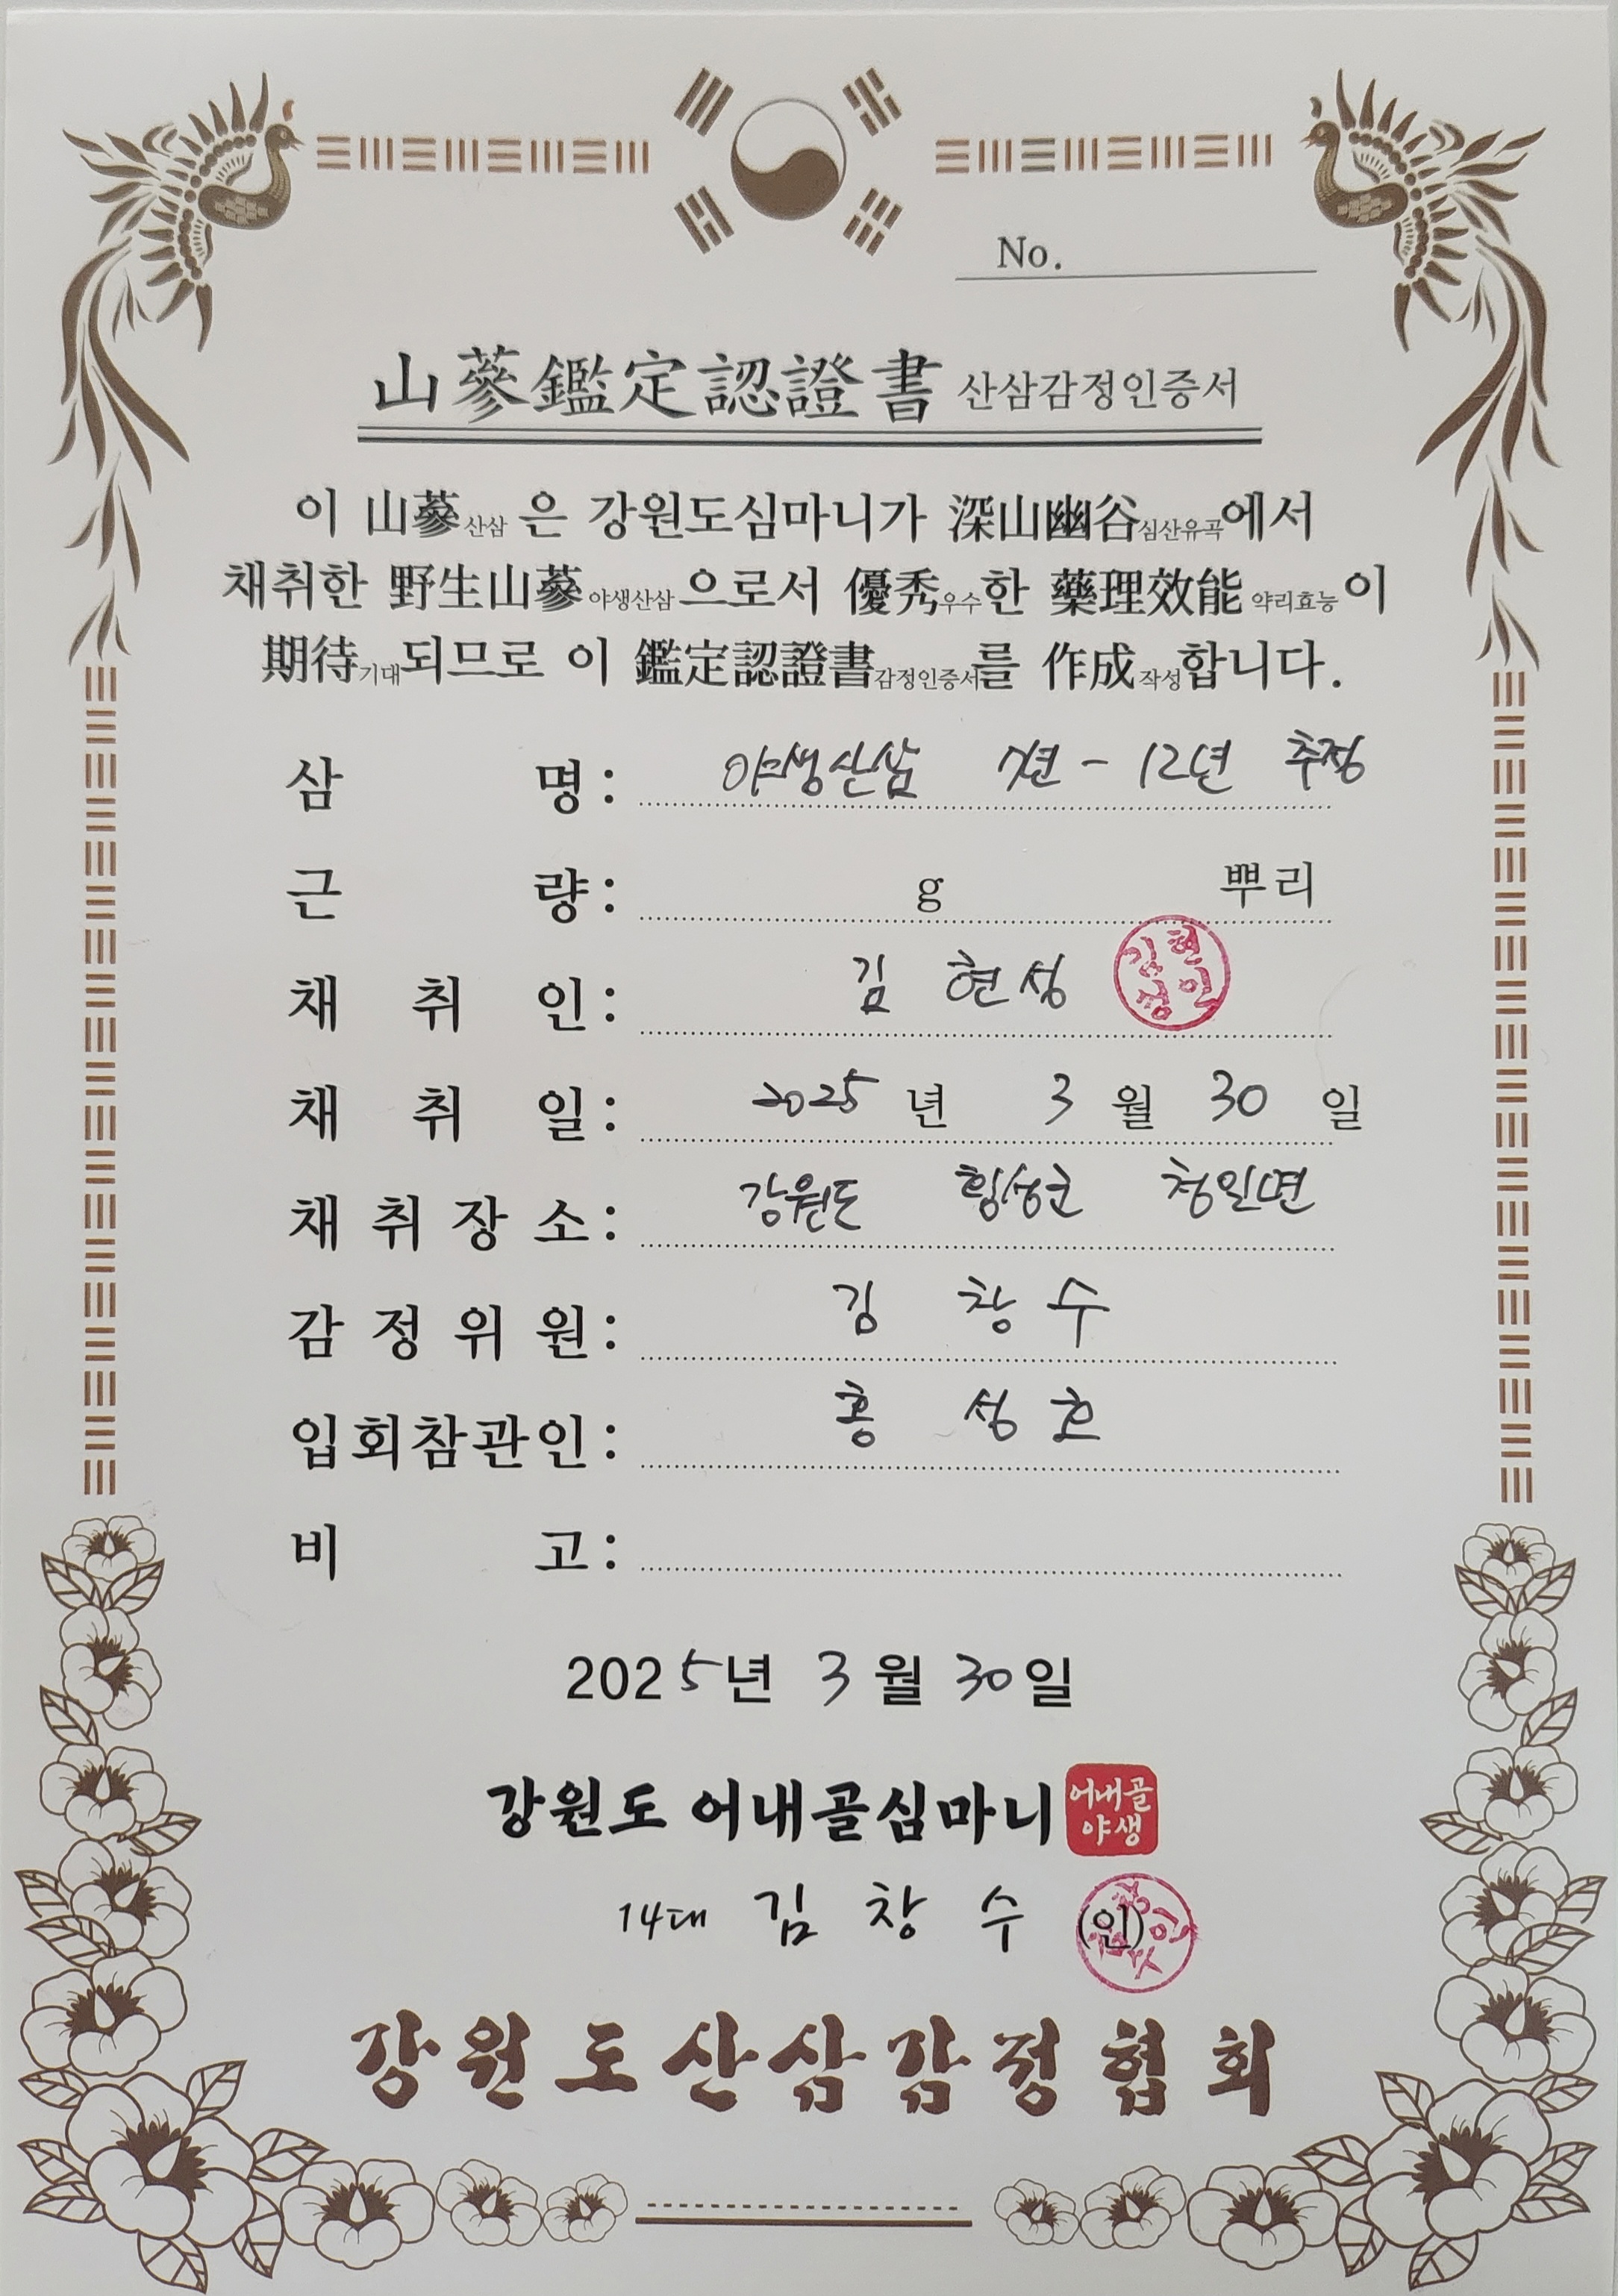 No.
山蔘鑑定認證書 산삼감정인증서
이 山蔘산삼 은 강원도심마니가 深山幽谷심산유곡에서
채취한 野生山蔘야생산삼으로서 優秀우수한 藥理效能약리효능이
期待기대되므로 이 鑑定認證書감정인증서를 作成작성합니다.
삼 명 : 야생산삼 7년 - 12년 추정
근 량 : g 뿌리
채 취 인 : 김 현성 김현성인
채 취 일 : 2025 년 3 월 30 일
채 취 장 소 : 강원도 횡성군 청일면
감 정 위 원 : 김 창 수
입회참관인 : 홍 성 호
비 고 :
2025년 3 월 30일
강원도 어내골심마니 어내골 야생
14대 김 창 수 (인)
강원도산삼감정협회